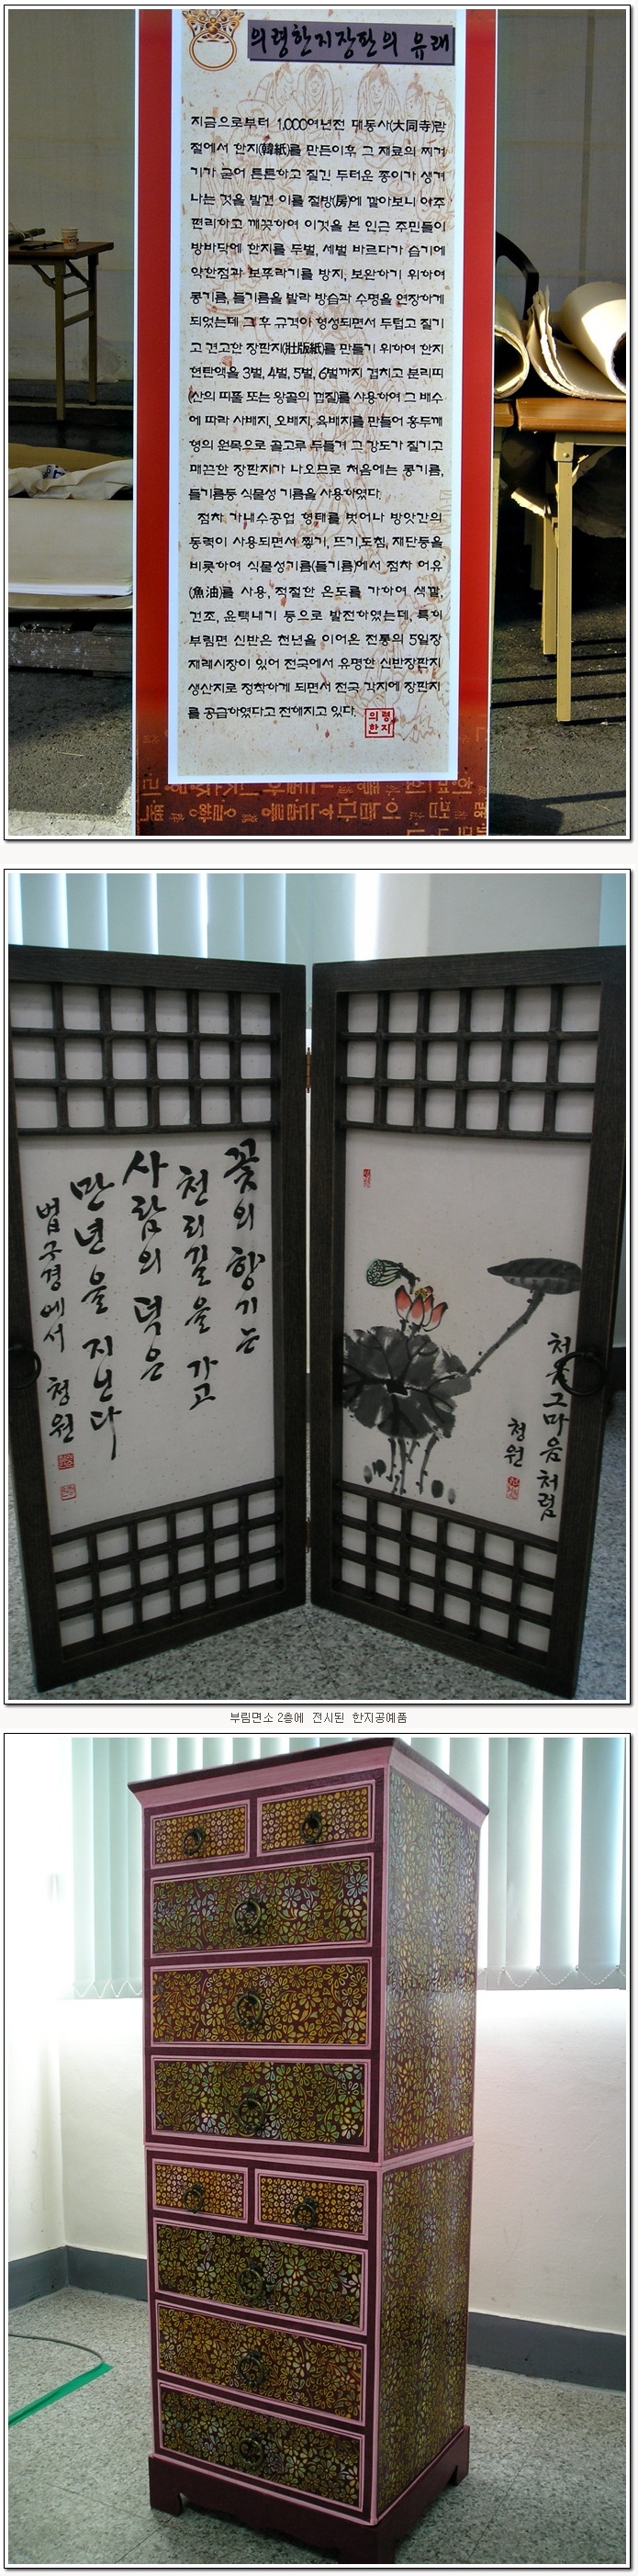 의령한지장판의 유래
지금으로부터 1,000여년전 대동사(大同寺)란
절에서 한지(韓紙)를 만든이후 그 재료의 찌꺼
기가 굳어 튼튼하고 질긴 두터운 종이가 생겨
나는 것을 발견 이를 절방(房)에 깔아보니 아주
편리하고 깨끗하여 이것을 본 인근 주민들이
방바닥에 한지를 두벌, 세벌 바르다가 습기에
약한점과 보푸라기를 방지, 보완하기 위하여
콩기름, 들기름을 발라 방습과 수명을 연장하게
되었는데 그 후 규격이 형성되면서 두텁고 질기
고 견고한 장판지(壯版紙)를 만들기 위하여 한지
현탄액을 3벌, 4벌, 5벌, 6벌까지 겹치고 분리띠
(산의 띠풀 또는 왕골의 껍질)를 사용하여 그 배수
에 따라 사배지, 오배지, 육배지를 만들어 홍두깨
형의 운목으로 골고루 두들겨 그 강도가 질기고
매끈한 장판지가 나오므로 처음에는 콩기름,
들기름등 식물성 기름을 사용하였다.
점차 가내수공업 형태를 벗어나 방앗간의
동력이 사용되면서 찧기, 뜨기,도침, 재단등을
비롯하여 식물성기름(들기름)에서 점차 어유
(魚油)를 사용, 적절한 온도를 가하여 색깔,
건조, 윤택내기 등으로 발전하였는데, 특히
부림면 신반은 천년을 이어온 전통의 5일장
재래시장이 있어 전국에서 유명한 신반장판지
생산지로 정착하게 되면서 전국 각지에 장판지
를 공급하였다고 전해지고 있다.
의령
한지
꽃의 향기는
천리길을 가고
사람의 덕은
만년을 지닌다
법구경에서 청원
처음 그마음처럼
청원
부림면소 2층에 전시된 한지공예품